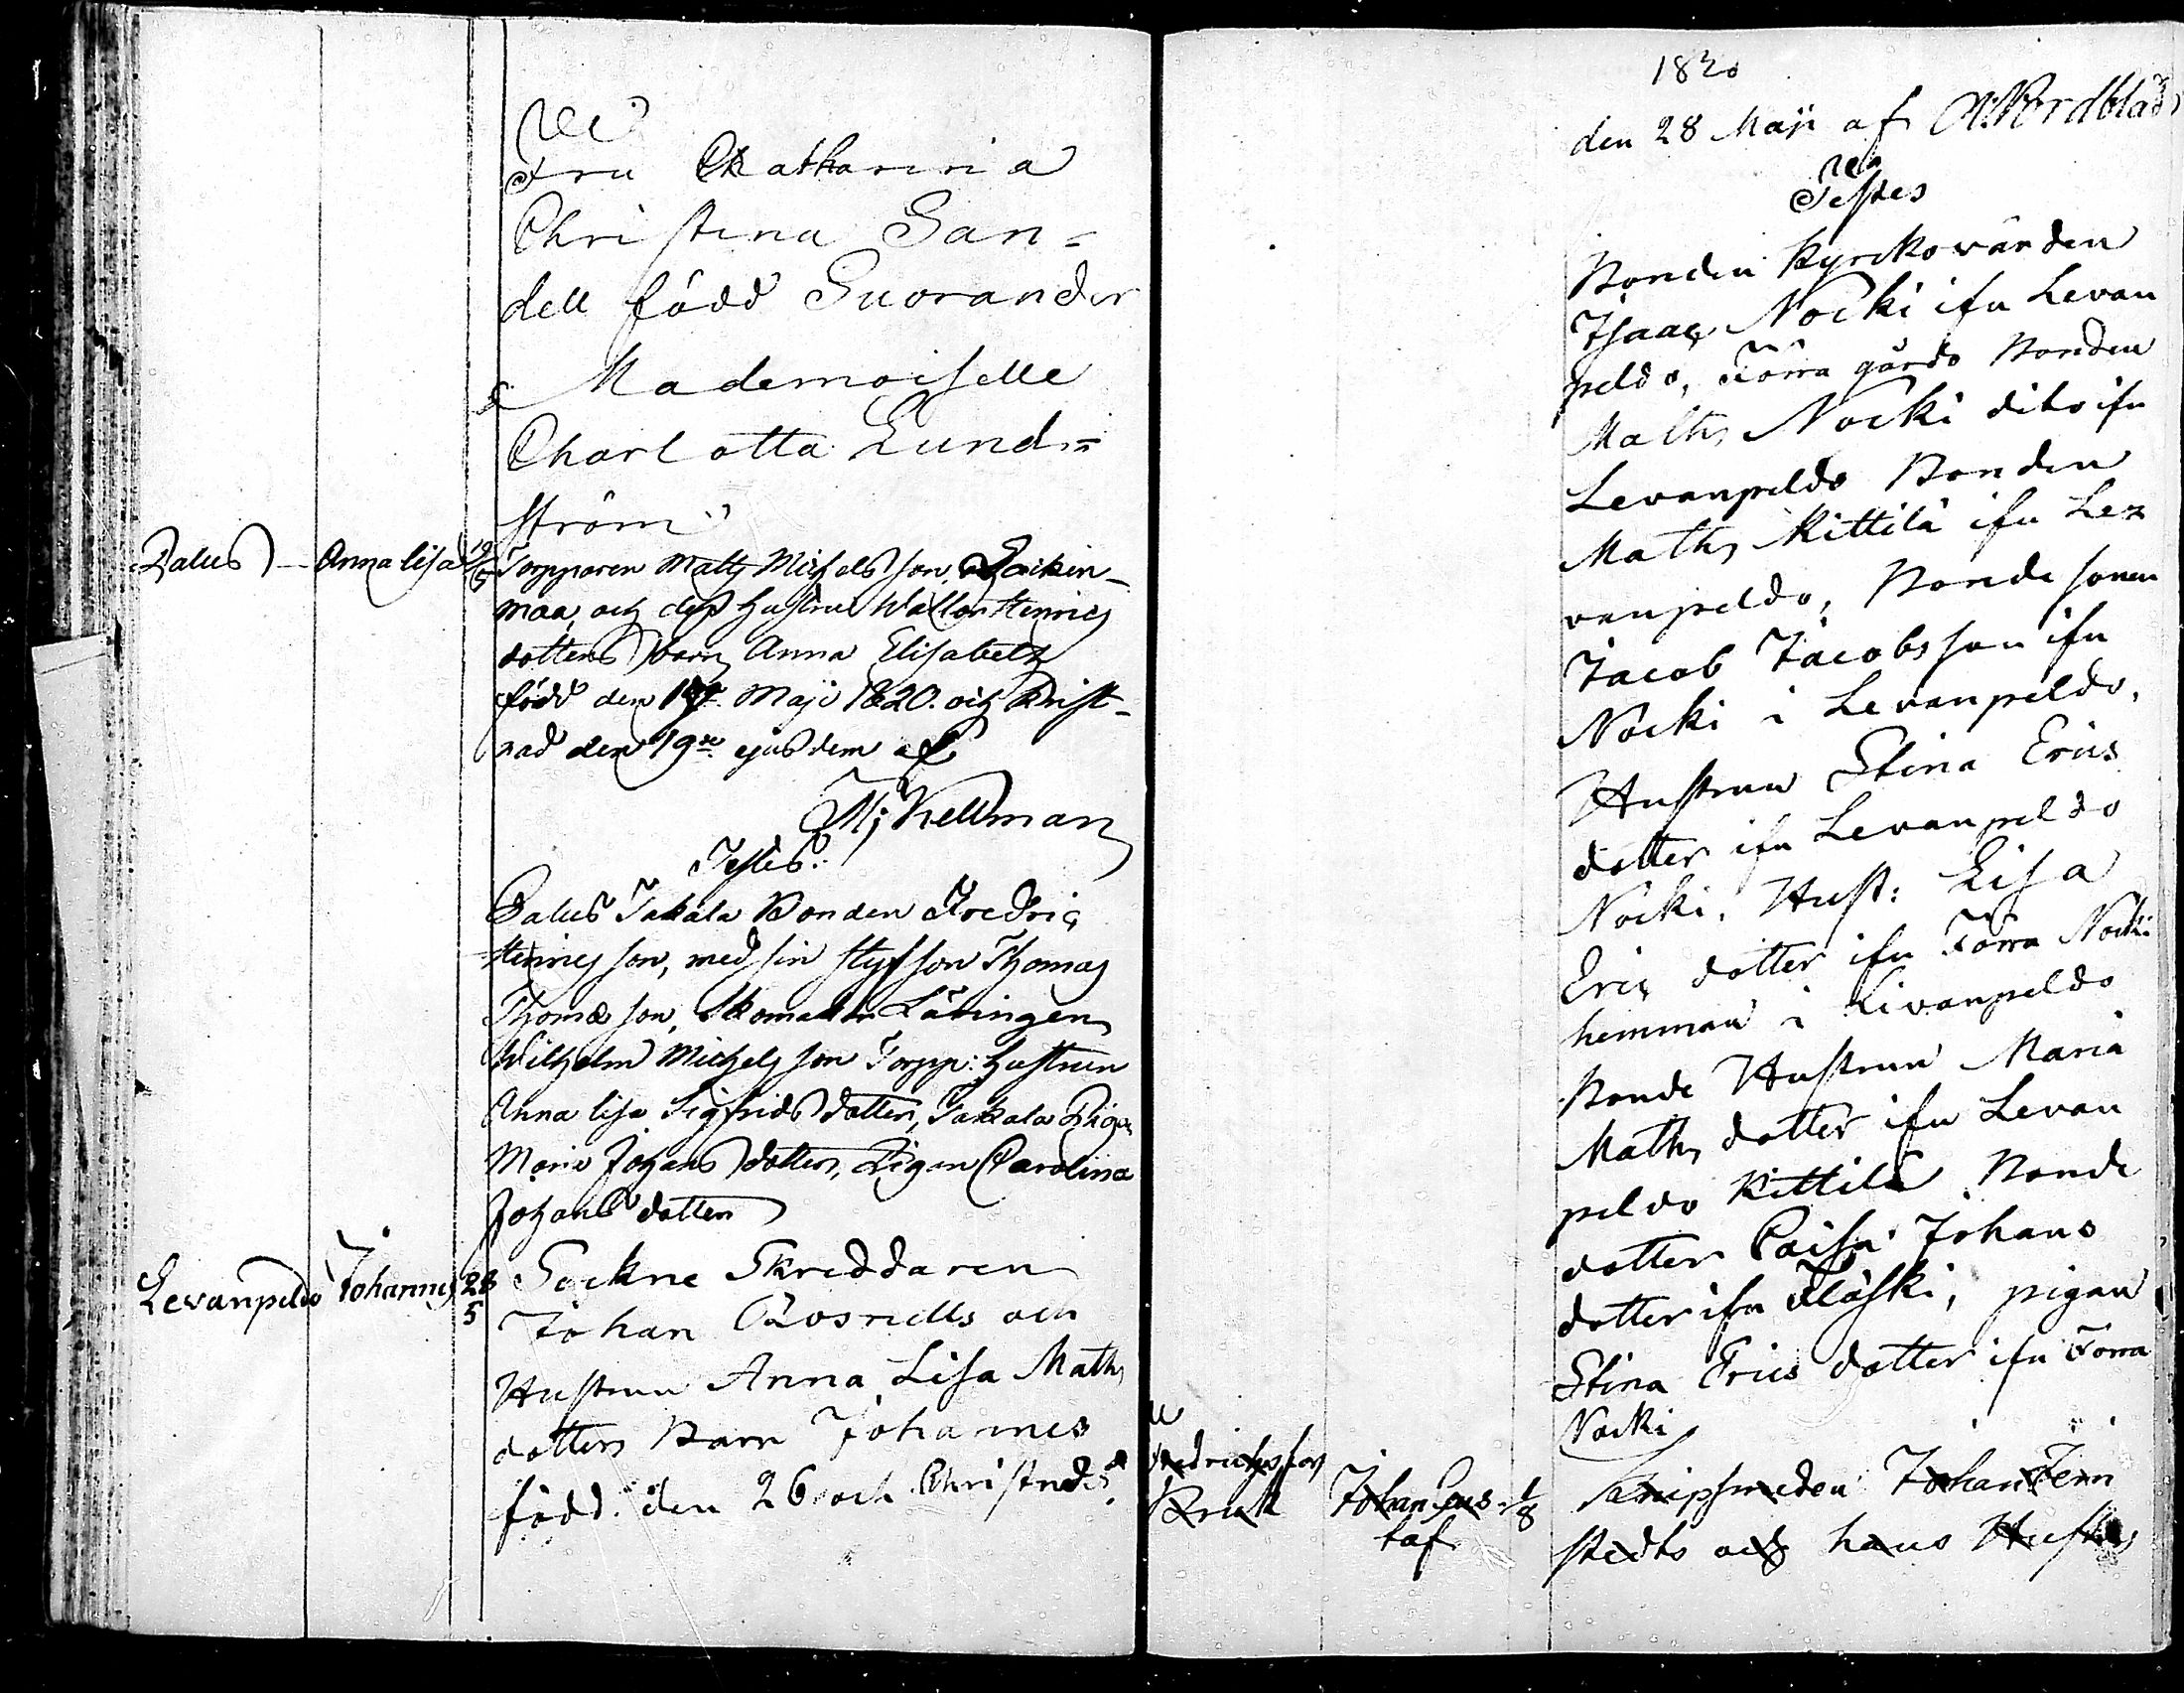 Fru Chatharina
Christina San=
dell född Suorander
Mademoiselle
Charlotta Lund=
ström
Palus - Anna Lisa 19/5 Torpparen Matts Michelsson
maa, och dess hustru Walbor Henrics
dotters barn Anna Elisabeth
född den 17 Maji 1820. och Krist-
nad den 19de ejusdem af
M: Kellman
Testes:
Palus Takala Bonden Fredric
Henricsson, med sin styfson Thomas
Thomæson, Skomakar Läringen
Wilhelm Michelsson Torpp: hustrun
Anna Lisa Sigfridsdotter, Takala Pigan
Maria Johansdotter, Pigan Carolina
Johansdotter
Levanpeldo Johannes 28/5 Sockne Skreddaren
Johan Rosnells och
Hustrun Anna Lisa Maths
dotters Barn Johannes
född den 26 och Christnades
1820
den 28 Maji af N: Nordblad
Testes
Bonden Kyrkovärden
Isaac Nocki ifrn Levan
peldo, Förra gårds Bonden
Maths Nocki dito ifrn
Levanpeldo Bonden
Maths Kittilä ifrn Le=
vanpeldo, Bonde sonen
Jacob Jacobsson ifrn
Nocki i Levanpeldo,
Hustrun Stina Erics
dotter ifrn Levanpeldo
Nocki, Hust: Lisa
Erics dotter ifrn Förra Nocki
hemman i Livanpeldo
Bonde Hustrun Maria
Maths dotter ifrn Levan
peldo Kittilä, Bonde
dotter Caisa Johans
dotter ifrn Fläski, pigan
Stina Erics dotter ifrn Förra
Nocki
Fredrichsfors
Bruk Johan Gus 1/8 Knipsmeden Johan Fern
taf
stedts och hans Hustrus